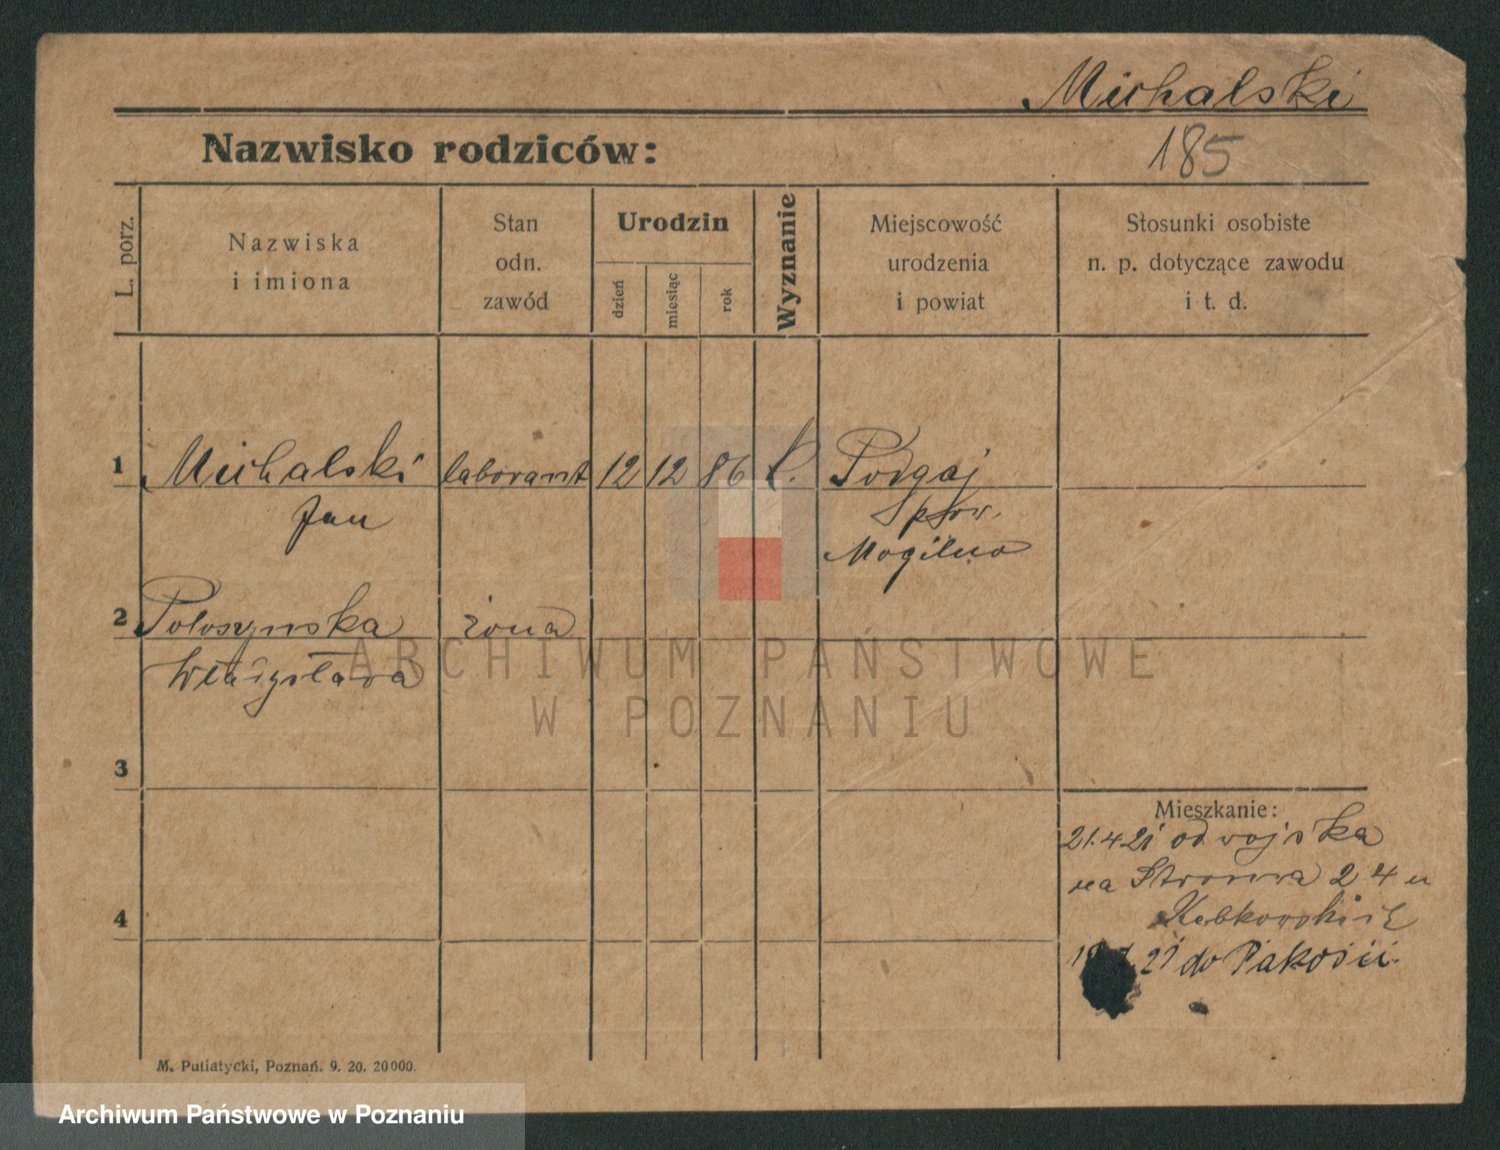 Michalski
185
Nazwisko rodziców:
L. porz.
Nazwiska
i imiona
Stan
odn.
zawód
Urodzin
dzień
miesiąc
rok
Wyznanie
Miejscowość
urodzenia
i powiat
Stosunki osobiste
n. p. dotyczące zawodu
i t. d.
1 Michalski laborant 12 12 86 Podgaj
Jan pow.
Mogilno
2 żona
Władysława
ARCHIWUM PAŃSTWOWE
W POZNANIU
3
Mieszkanie:
21.4 21 od wojska
na 24 u
4
21 do Pakości.
M. Putiatycki, Poznań. 9. 20. 20000.
Archiwum Państwowe w Poznaniu